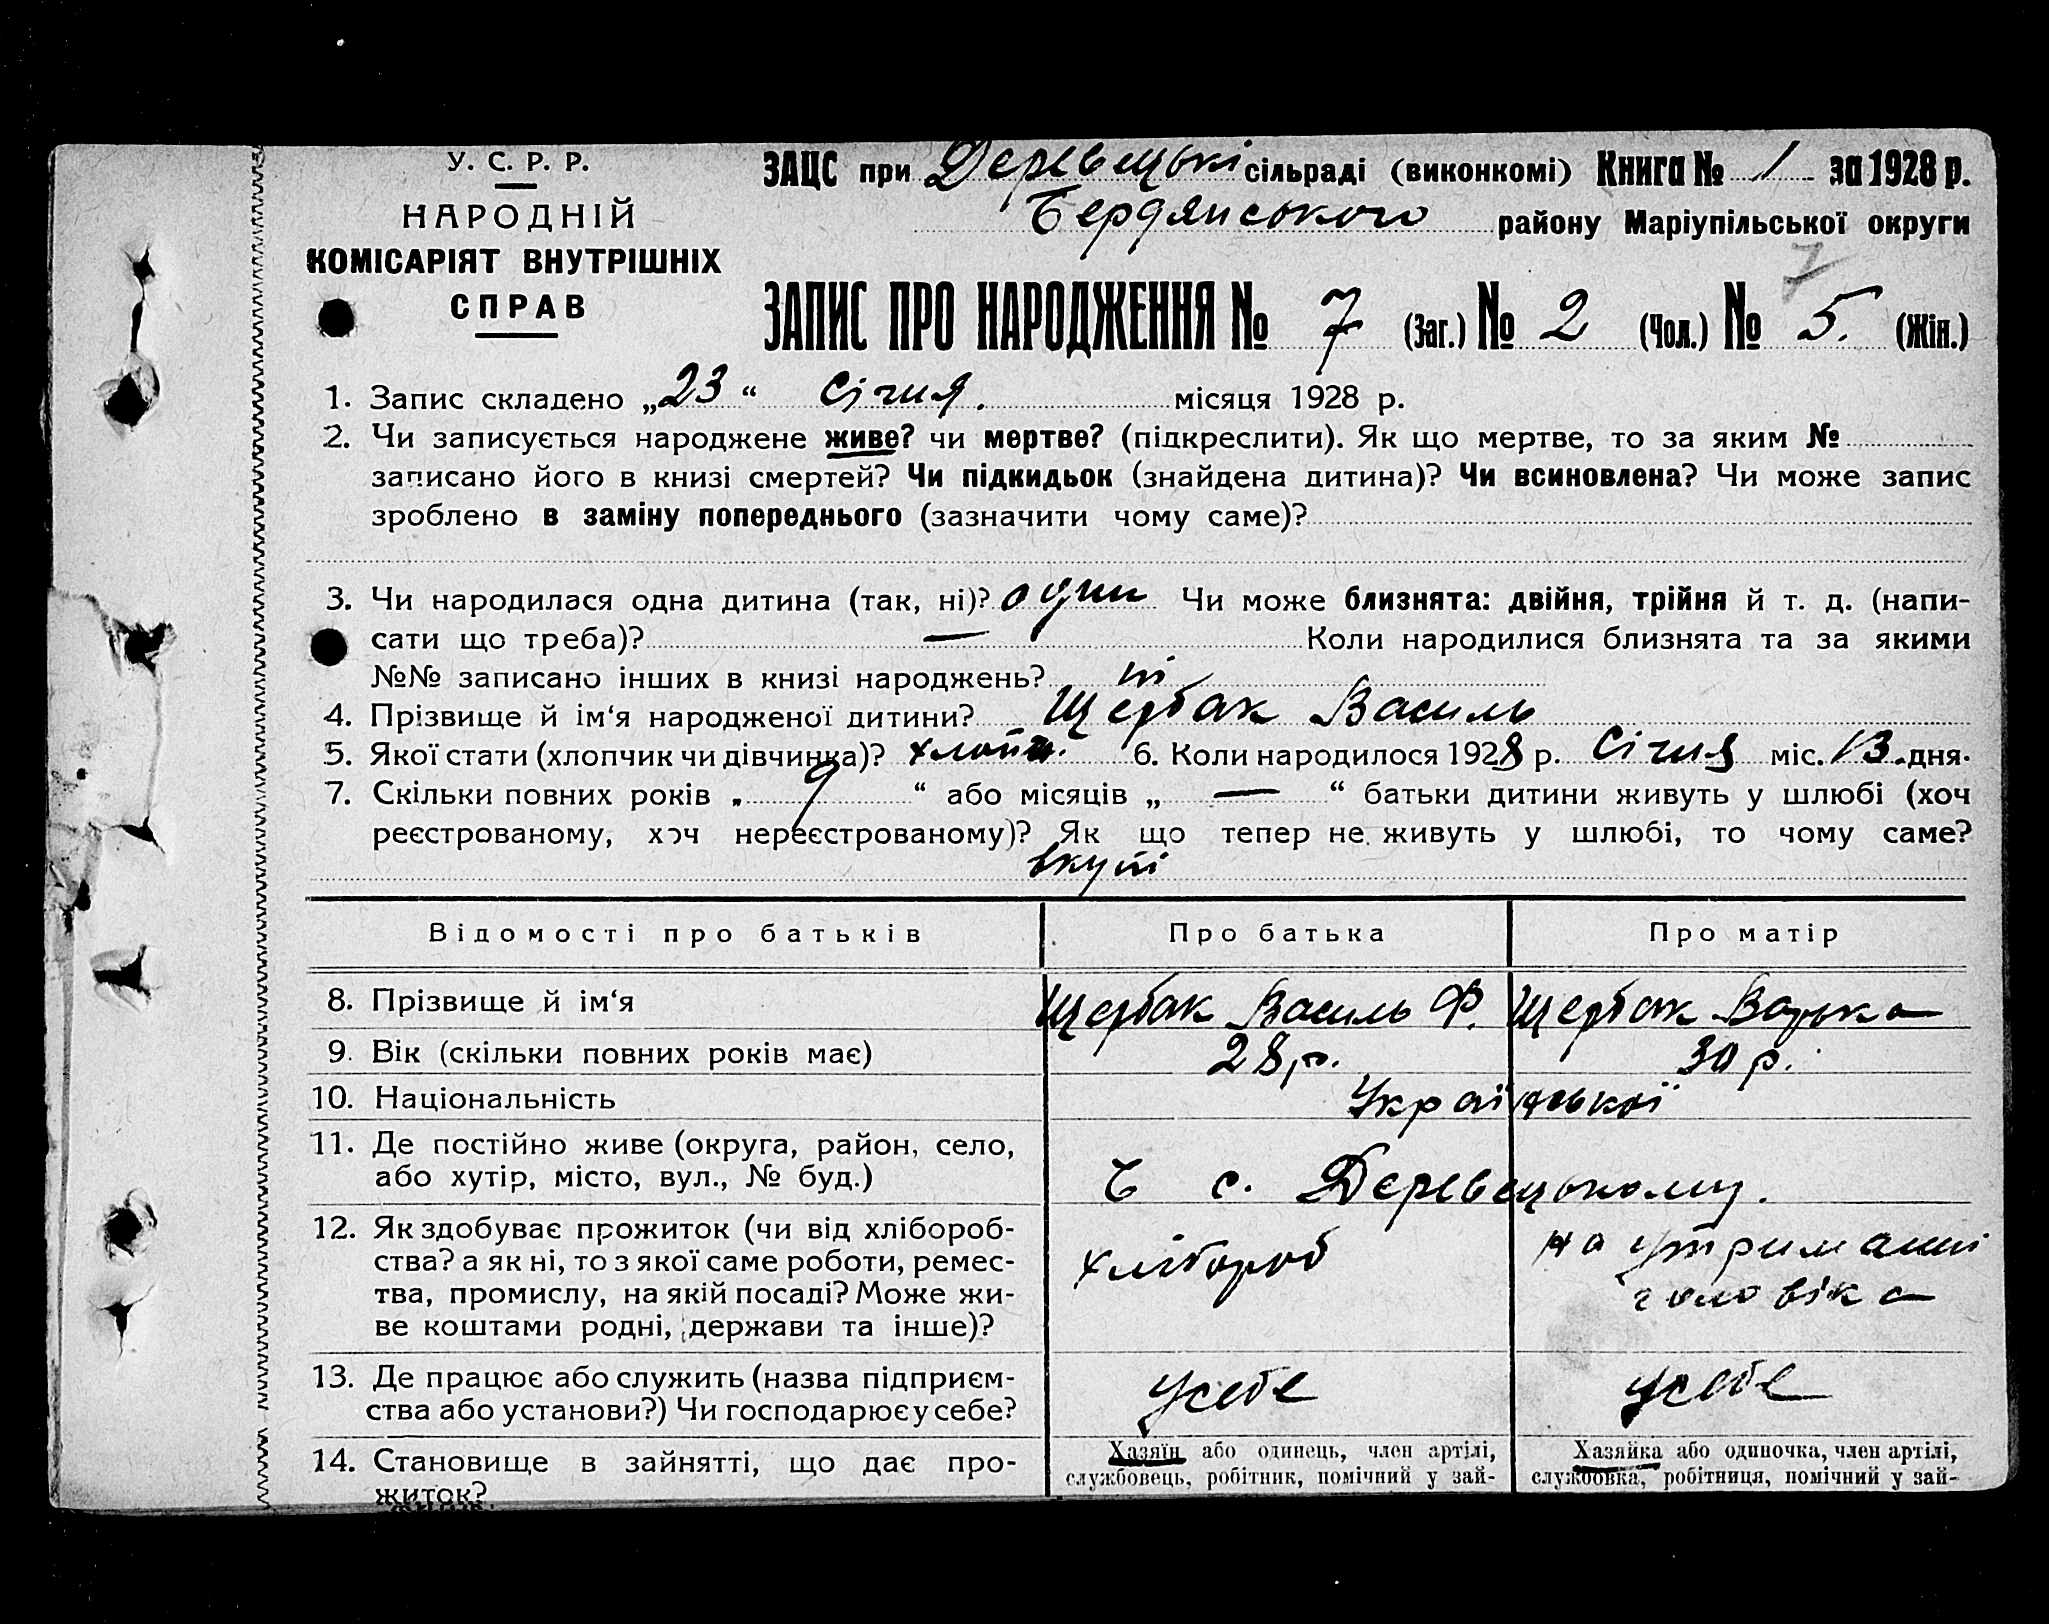 У. С. Р. Р.
НАРОДНІЙ
КОМІСАРІЯТ ВНУТРІШНІХ
СПРАВ
ЗАЦС при Деревецькі сільраді (виконкомі) Книга № 1 за 1928 р.
Бердянського району Маріупільської округи
7
ЗАПИС ПРО НАРОДЖЕННЯ № 7 (Заг.) № 2 (Чол.) № 5. (Жін.)
1. Запис складено „23“ Січня. місяця 1928 р.
2. Чи записується народжене живе? чи мертве? (підкреслити). Як що мертве, то за яким №
записано його в книзі смертей? Чи підкидьок (знайдена дитина)? Чи всиновлена? Чи може запис
зроблено в заміну попереднього (зазначити чому саме)?
3. Чи народилася одна дитина (так, ні)? один Чи може близнята: двійня, трійня й т. д. (напи-
сати що треба)? — Коли народилися близнята та за якими
№№ записано інших в книзі народжень? ні
4. Прізвище й ім‘я народженої дитини? Щербак Василь
5. Якої стати (хлопчик чи дівчинка)? хлопч. 6. Коли народилося 1928 р. Січня міс. 13. дня.
7. Скільки повних років „ 9 “ або місяців „ — “ батьки дитини живуть у шлюбі (хоч
реєстрованому, хоч нереєстрованому)? Як що тепер не живуть у шлюбі, то чому саме?
вкупі
Відомості про батьків Про батька Про матір
8. Прізвище й ім‘я Щербак Василь Ф. Щербак
9. Вік (скільки повних років має) 28 р. 30 р.
10. Національність Української
11. Де постійно живе (округа, район, село,
або хутір, місто, вул., № буд.) В с. Деревецькому.
12. Як здобуває прожиток (чи від хлібороб-
ства? а як ні, то з якої саме роботи, ремес-
тва, промислу, на якій посаді? Може жи-
ве коштами родні, держави та інше)?
хлібороб
на утриманні
чоловіка
13. Де працює або служить (назва підприєм-
ства або установи?) Чи господарює у себе?
у себе у себе
14. Становище в зайнятті, що дає про-
житок?
Хазяїн або одинець, член артілі,
службовець, робітник, помічний у зай-
Хазяйка або одиночка, член артілі,
службовка, робітниця, помічний у зай-